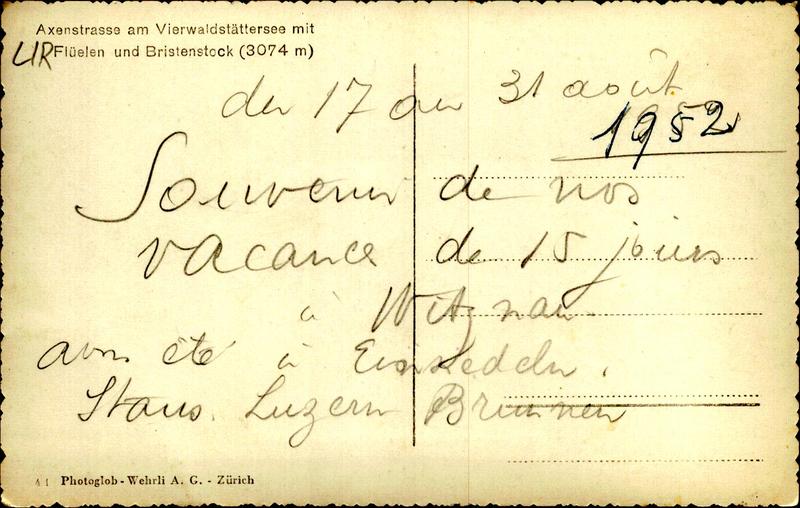 Axenstrasse am Vierwaldstättersee mit
UR Flüelen und Bristenstock (3074 m)
du 17 au 31 août
1952
Souvenir de nos
vacance de 15 jours
à Witznau
avons été à Einsiedeln.
Stans. Luzern Brunnen
41 Photoglob-Wehrli A. G. - Zürich